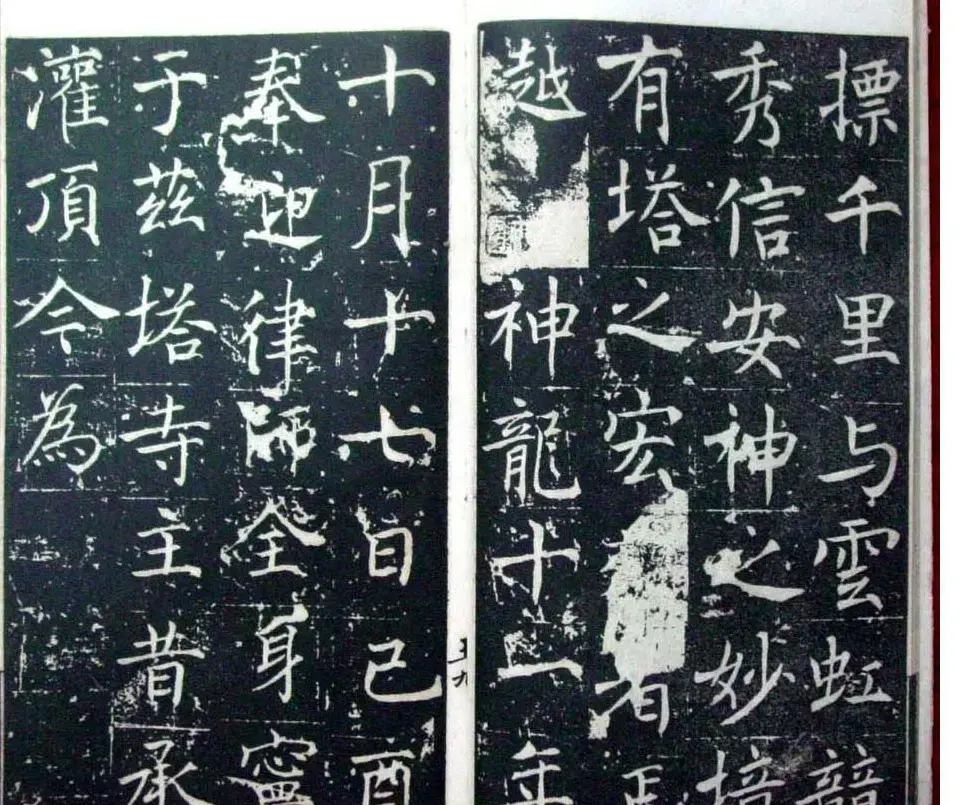 摽千里与雲虹競
秀信安神之妙塔
有塔之宏者焉
越神龍十一年
十月十七日己酉
奉迎律師全身窆
于茲塔寺主昔承
灌頂今為
五九